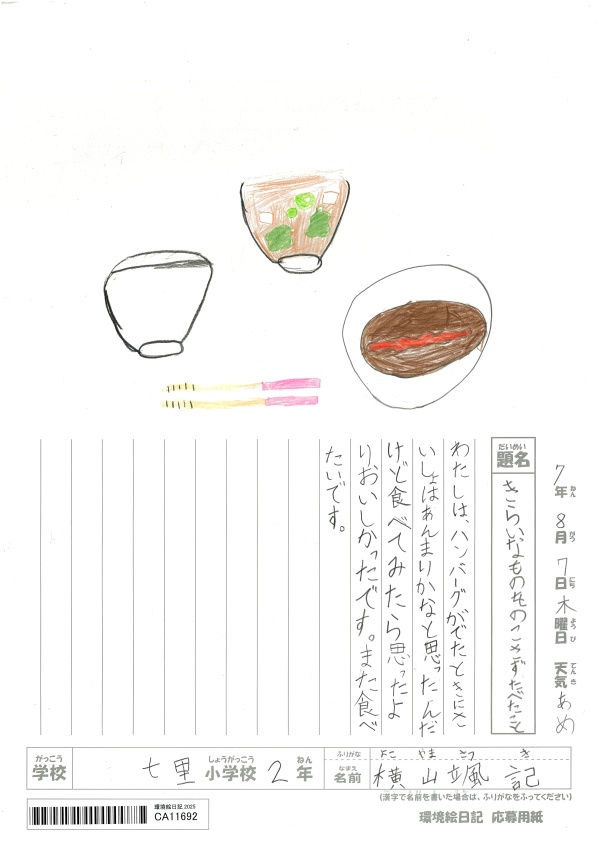 7年 8月 7日 木曜日 天気 あめ
ねん がつ にち ようび てんき
だいめい
題名 きらいなものものこさずたべたこと
わたしは、ハンバーグがでたときにさ
いしょはあんまりかなと思ったんだ
けど食べてみたら思ったよ
りおいしかったです。また食べ
たいです。
がっこう しょうがっこう ねん
学校 七里 小学校 2年
ふりがな よこ やま さつ き
なまえ
名前 横山颯記
(漢字で名前を書いた場合は、ふりがなをふってください)
環境絵日記 2025
CA11692
環境絵日記 応募用紙